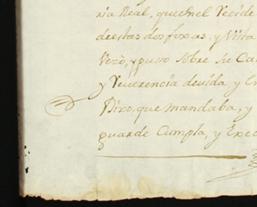 ria Real, que en el Recide
de estas dos foxas, y Vista
Vezò, y puso sobre su Ca
y Reverencia devida, y
Dixo, que mandaba, y
guarde Cumpla, y Exec